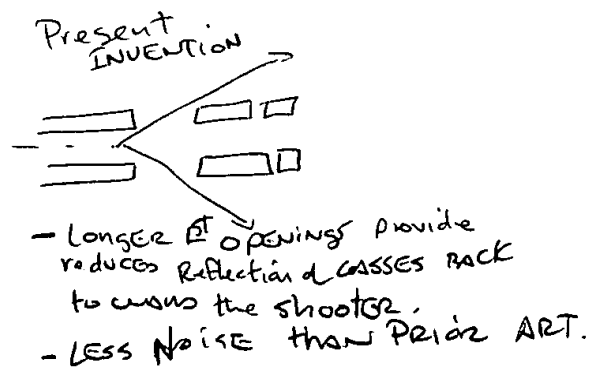 Present
INVENTION
- LONGER 1st OPENINGS Provide
reduces Reflection of GASSES BACK
towards the shooter.
- LESS NOISE than PRIOR ART.